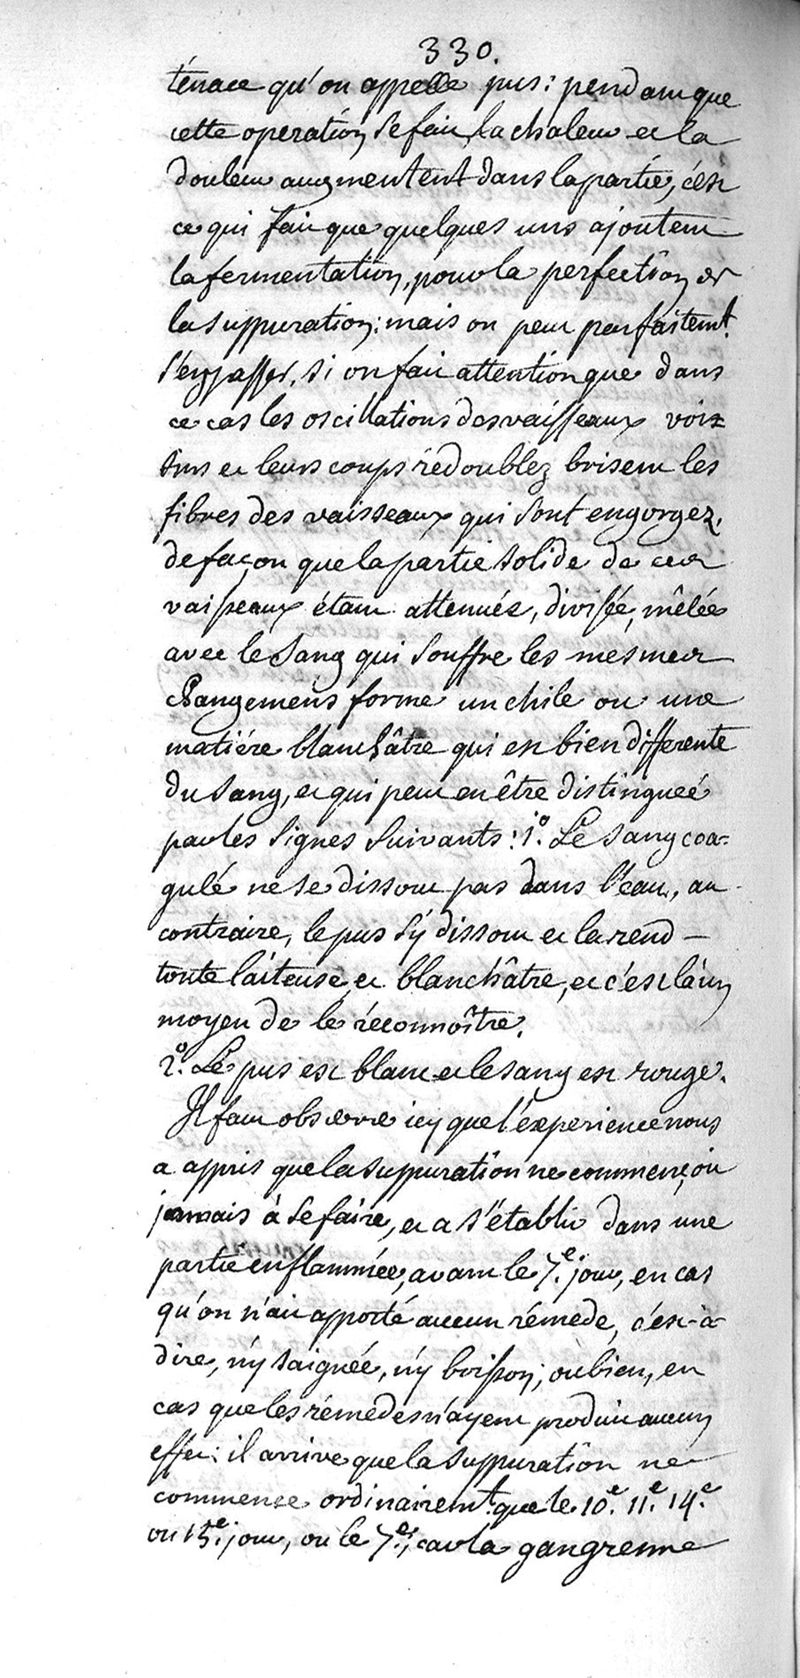 330.
ténace qu'on appelle pus: pendant que
cette operation se fait, la chaleur et la
douleur augmentent dans la partie, c'est
ce qui fait que quelques uns ajoutent
la fermentation, pour la perfection de
la suppuration: mais on peut parfaitemt.
s'en passer, si on fait attention que dans
ce cas les oscillations des vaisseaux voi-
sins et leurs coups rédoublez brisent les
fibres des vaisseaux qui sont engorgez,
de façon que la partie solide de ces
vaisseaux étant attenuée, divisée, mêlée
avec le sang qui souffre les mesmes
changemens forme un chile ou une
matiére blanchâtre qui est bien differente
du sang, et qui peut en être distinguée
par les signes suivants: 1.º Le sang coa-
gulé ne se dissout pas dans l'eau, au
contraire, le pus s'y dissout et la rend
toute laiteuse, et blanchâtre, et c'est là un
moyen de le réconnoître.
2.º Le pus est blanc et le sang est rouge.
Il faut observer icy que l'éxperience nous
a appris que la suppuration ne commençoit
jamais à se faire, et a s'établir dans une
partie enflammée, avant le 7.e jour, en cas
qu'on n'ait apporté aucun rémede, c'est-à-
dire, n'y saignée, n'y boisson; ou bien, en
cas que les rémedes n'ayent produit aucun
effet: il arrive que la suppuration ne
commence ordinairemt. que le 10.e 11.e 14.e
ou 15.e jour, ou le 7.e; car la gangrenne